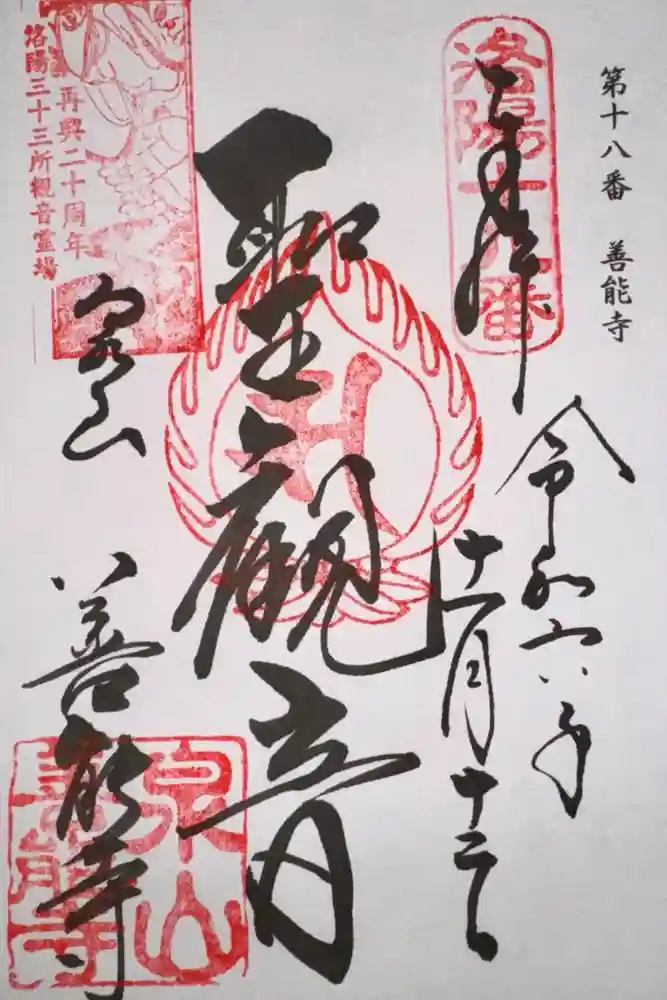 第十八番 善能寺
奉拝
洛陽十八番
令和六年
十一月十二日
聖観音
再興二十周年
洛陽三十三所観音霊場
泉山
善能寺
泉山
善能寺